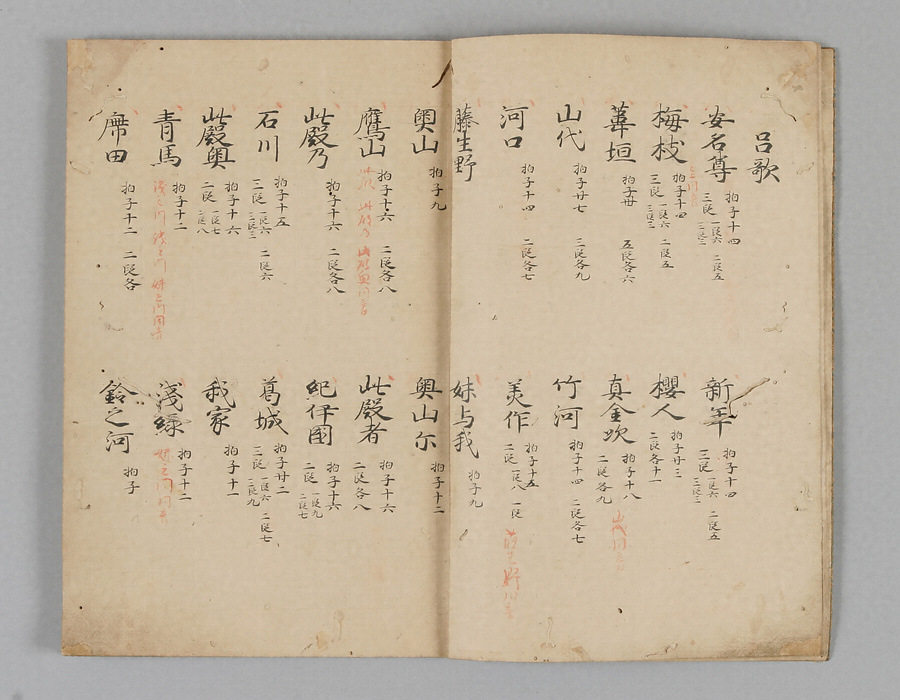 呂歌
安名尊 拍子十四 三段 一段六 二段五 三段三
新年 拍子十四 三段 一段六 二段五 三段三
梅枝 拍子十四 三段 一段六 二段五 三段三
櫻人 拍子廿三 二段各十一
葦垣 拍子卅 五段各六
真金吹 拍子十八 二段各九
山代 拍子廿七 三段各九
竹河 拍子十四 二段各七
河口 拍子十四 二段各七
美作 拍子十五 二段 一段八 一段
藤生野
妹与我 拍子九
奥山 拍子九
奥山尓 拍子十二
鷹山 拍子十六 二段各八
此殿者 拍子十六 二段各八
此殿乃 拍子十六 二段各八
紀伊国 拍子十六 二段 一段九 二段七
石川 拍子十五 三段 一段六 二段六 三段三
葛城 拍子廿二 三段 一段六 二段七 三段九
此殿奥 拍子十六 二段 一段七 二段八
我家 拍子十一
青馬 拍子十二
浅緑 拍子十二
席田 拍子十二 二段各
鈴之河 拍子